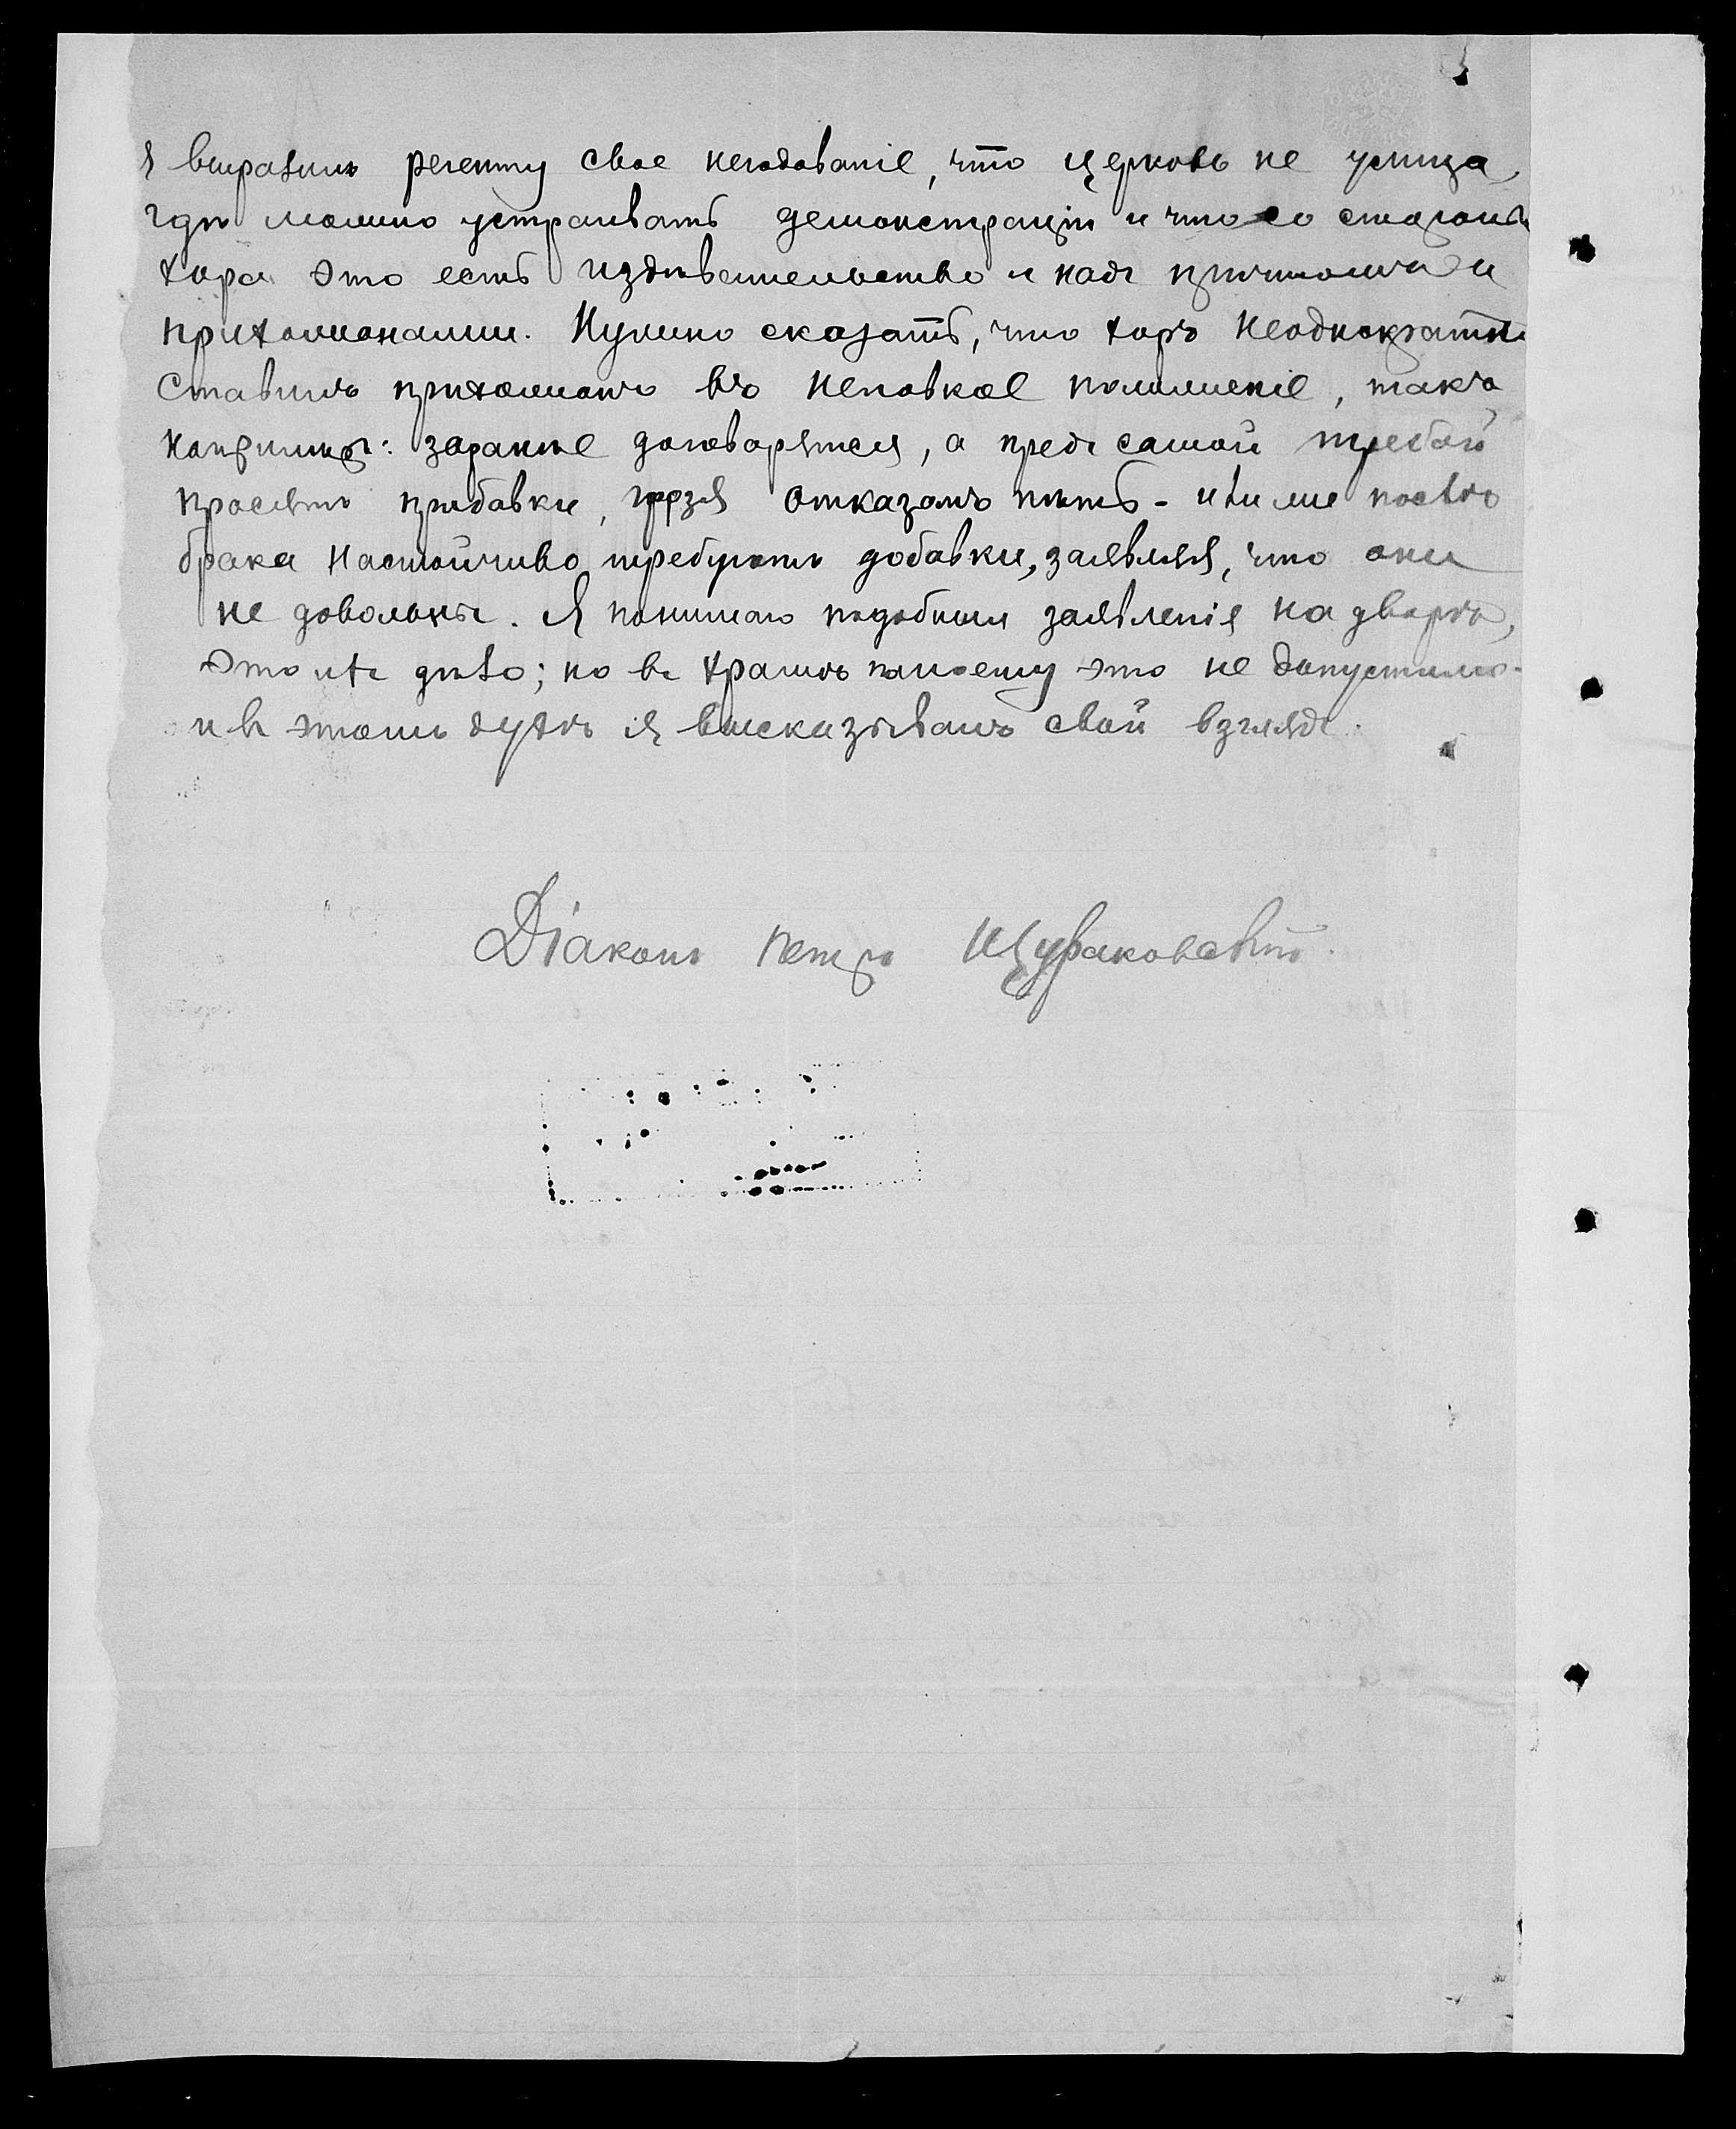 я выразилъ регенту свое негодованіе, что церковь не улица,
гдѣ можно устраивать демонстраціи и что со стороны
хора это есть издѣвательство и надъ причтомъ и
прихожанами. Нужно сказать, что хоръ неоднократно
ставилъ прихожанъ въ неловкое положеніе, такъ
напримѣръ: заранѣе договорятся, а предъ самой требой
просятъ прибавки, грозя отказомъ пѣть - или же послѣ
брака настойчиво требуютъ добавки, заявляя, что они
не довольны. Я понимаю подобныя заявленія на дворѣ,
это ихъ дѣло; но въ храмѣ помоему это не допустимо -
и въ этомъ духѣ я высказывалъ свой взглядъ.
Діаконъ Петръ Щураковскій.